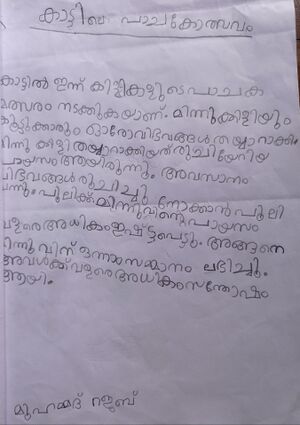 കാട്ടിലെ പാചകോത്സവം
കാട്ടിൽ ഇന്ന് കിളികളുടെ പാചക
മത്സരം നടക്കുകയാണ്. മിന്നുകിളിയും
കൂട്ടുകാരും ഓരോ വിഭവങ്ങൾ തയ്യാറാക്കി.
മിന്നു കിളി തയ്യാറാക്കിയത് രുചിയേറിയ
പായസം ആയിരുന്നു. അവസാനം
വിഭവങ്ങൾ രുചിച്ചു നോക്കാൻ പുലി
വന്നു. പുലിക്ക് മിന്നുവിന്റെ പായസം
വളരെ അധികം ഇഷ്ടപെട്ടു. അങ്ങനെ
മിന്നുവിന് ഒന്നാം സമ്മാനം ലഭിച്ചു.
അവൾക്ക് വളരെ അധികം സന്തോഷം
ആയി.
മുഹമ്മദ് റജുബ്